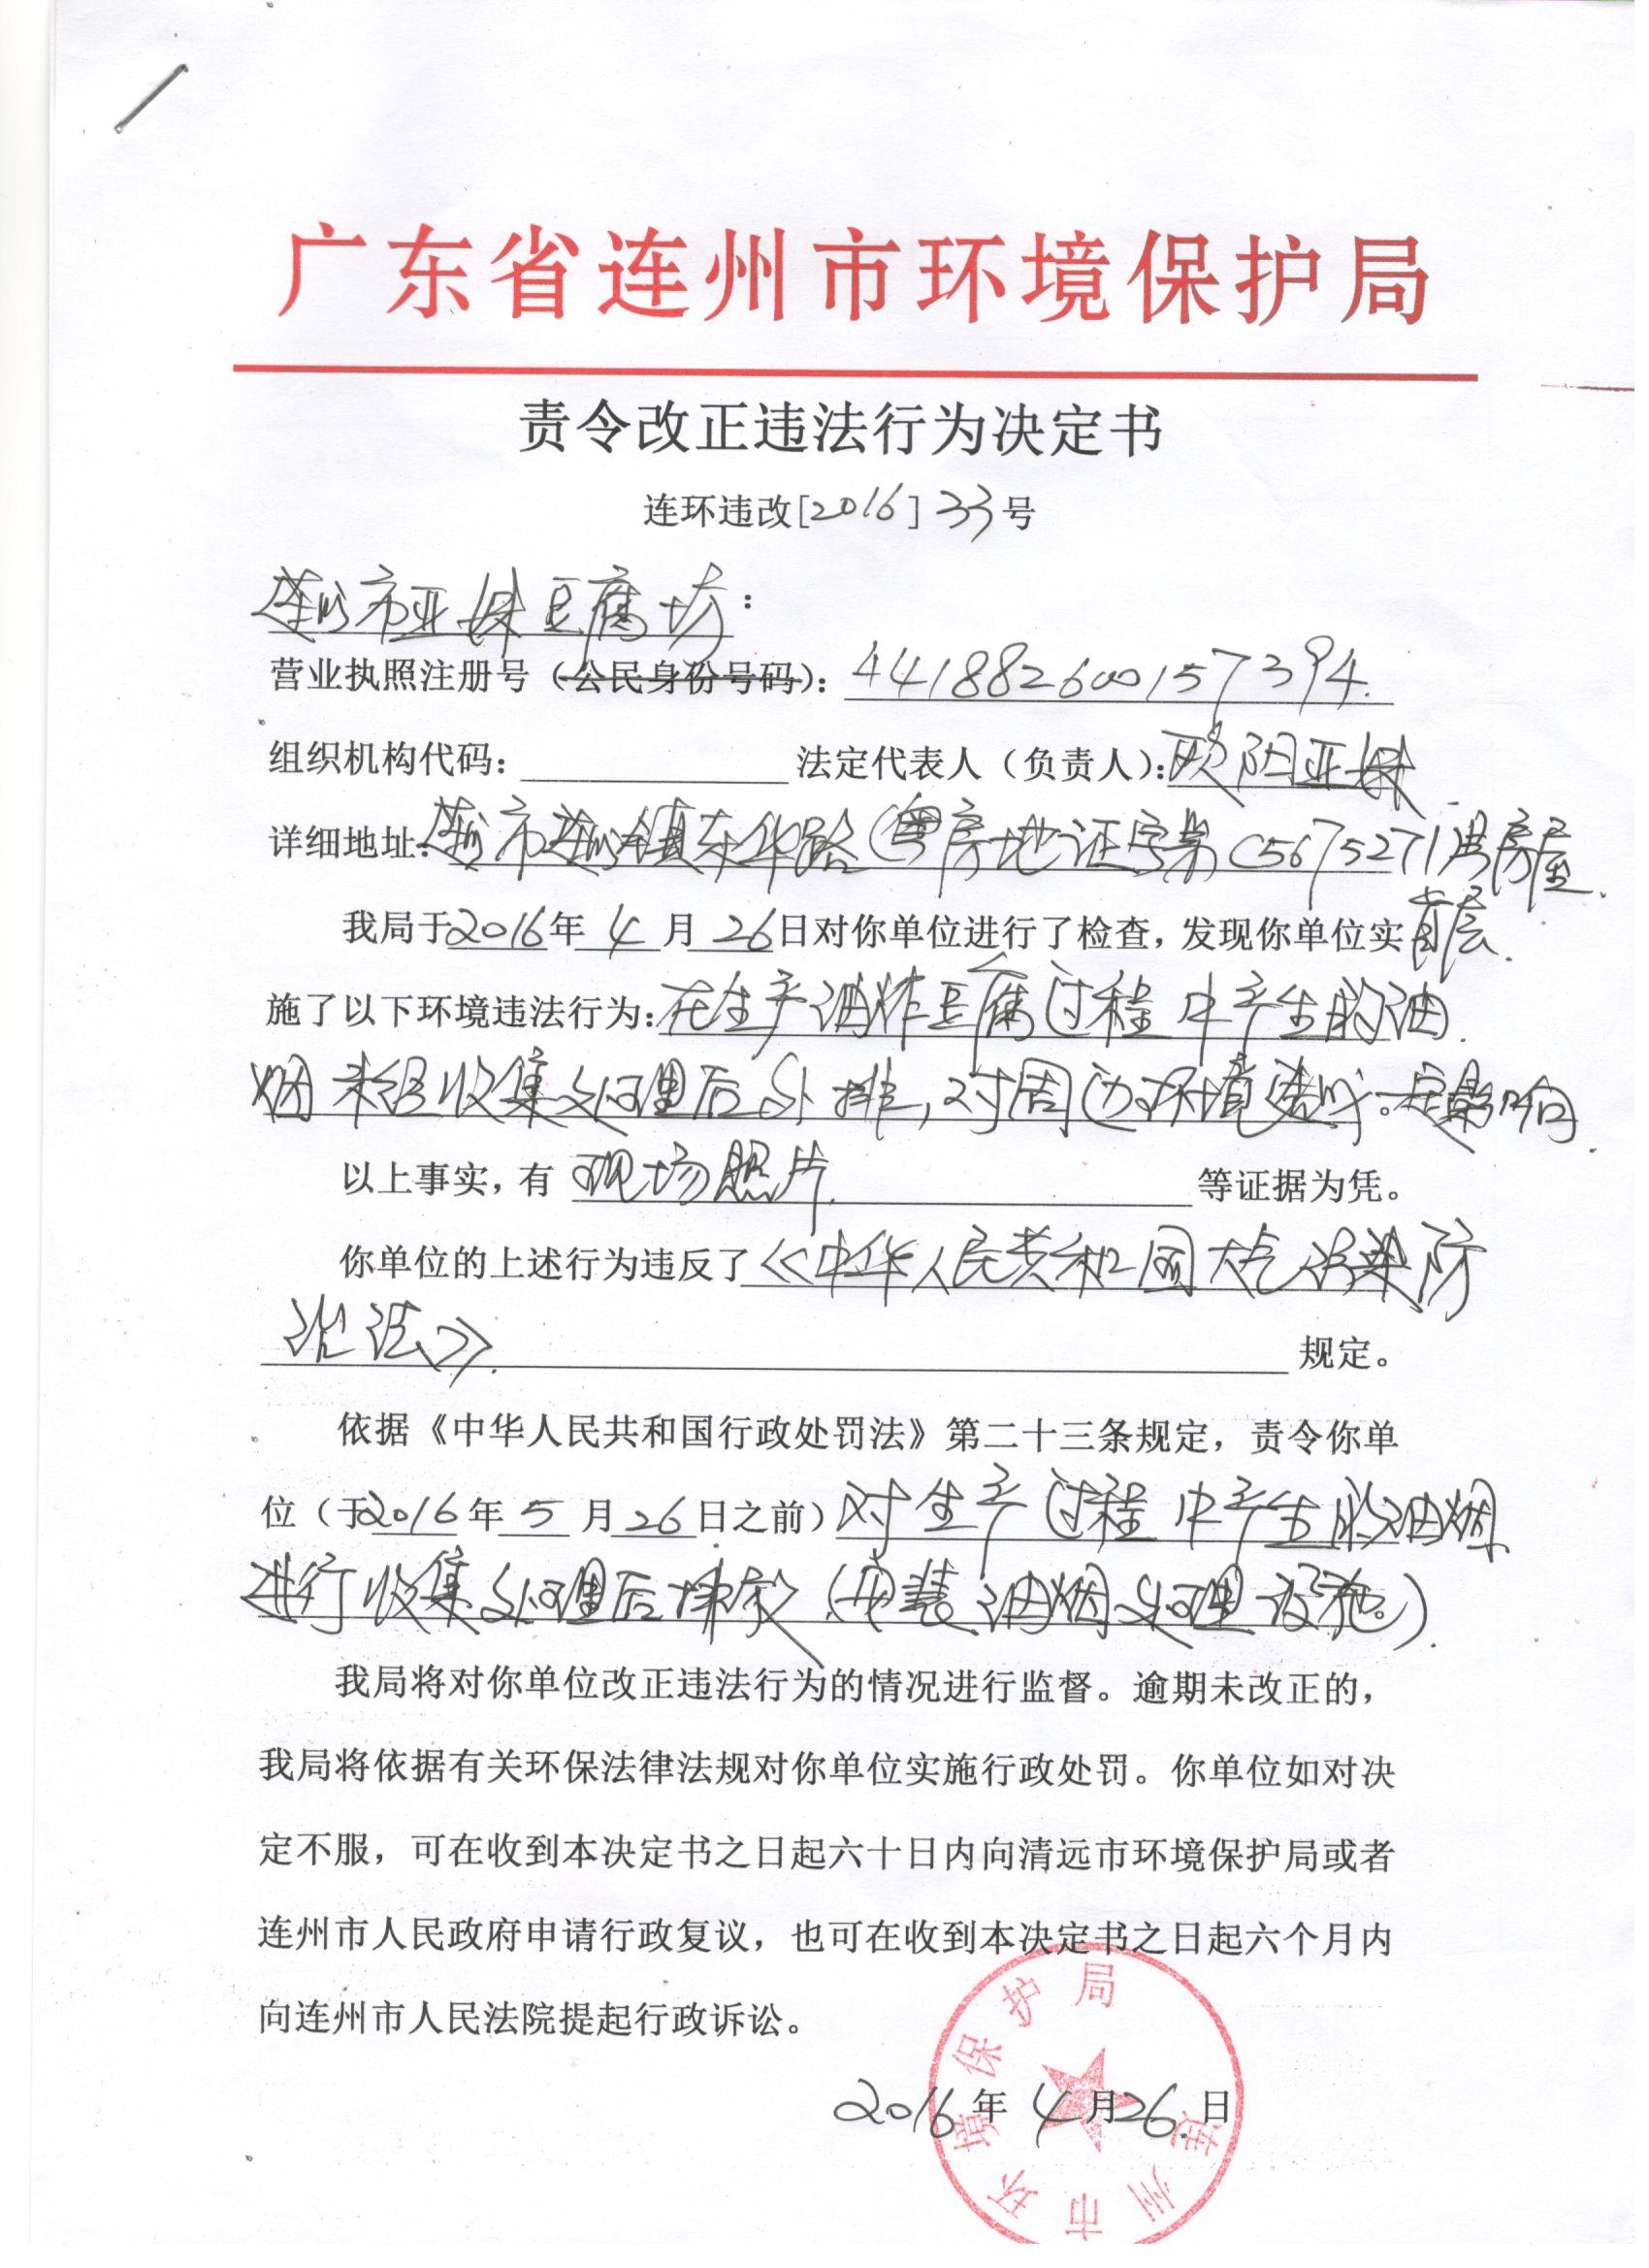 广东省连州市环境保护局
责令改正违法行为决定书
连环违改[2016]33号
连州市亚妹豆腐坊：
营业执照注册号（公民身份号码）：441882600157394.
组织机构代码：法定代表人（负责人）：欧阳亚妹
详细地址：连州市连州镇东华路（粤房地证字第C5675271号房屋
首层.
我局于2016年4月26日对你单位进行了检查，发现你单位实
施了以下环境违法行为：在生产油炸豆腐过程中产生的油
烟未经收集处理后外排，对周边环境造成一定影响.
以上事实，有现场照片.等证据为凭。
你单位的上述行为违反了《中华人民共和国大气污染防
治法》.规定。
依据《中华人民共和国行政处罚法》第二十三条规定，责令你单
位（于2016年5月26日之前）对生产过程中产生的油烟
进行收集处理后排放（安装油烟处理设施。）.
我局将对你单位改正违法行为的情况进行监督。逾期未改正的，
我局将依据有关环保法律法规对你单位实施行政处罚。你单位如对决
定不服，可在收到本决定书之日起六十日内向清远市环境保护局或者
连州市人民政府申请行政复议，也可在收到本决定书之日起六个月内
向连州市人民法院提起行政诉讼。
2016年4月26日
连州市环境保护局